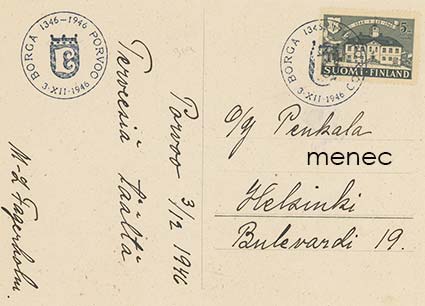 BORGÅ 1346-1946 PORVOO
3·XII·1946
BORGÅ 1346
3·XII·1946
1346 1946
5 mk
SUOMI-FINLAND
Porvoo 3/12 1946
Terveisiä täältä
M-L Fagerholm.
O/Y Penkala
menec
Helsinki
Bulevardi 19.